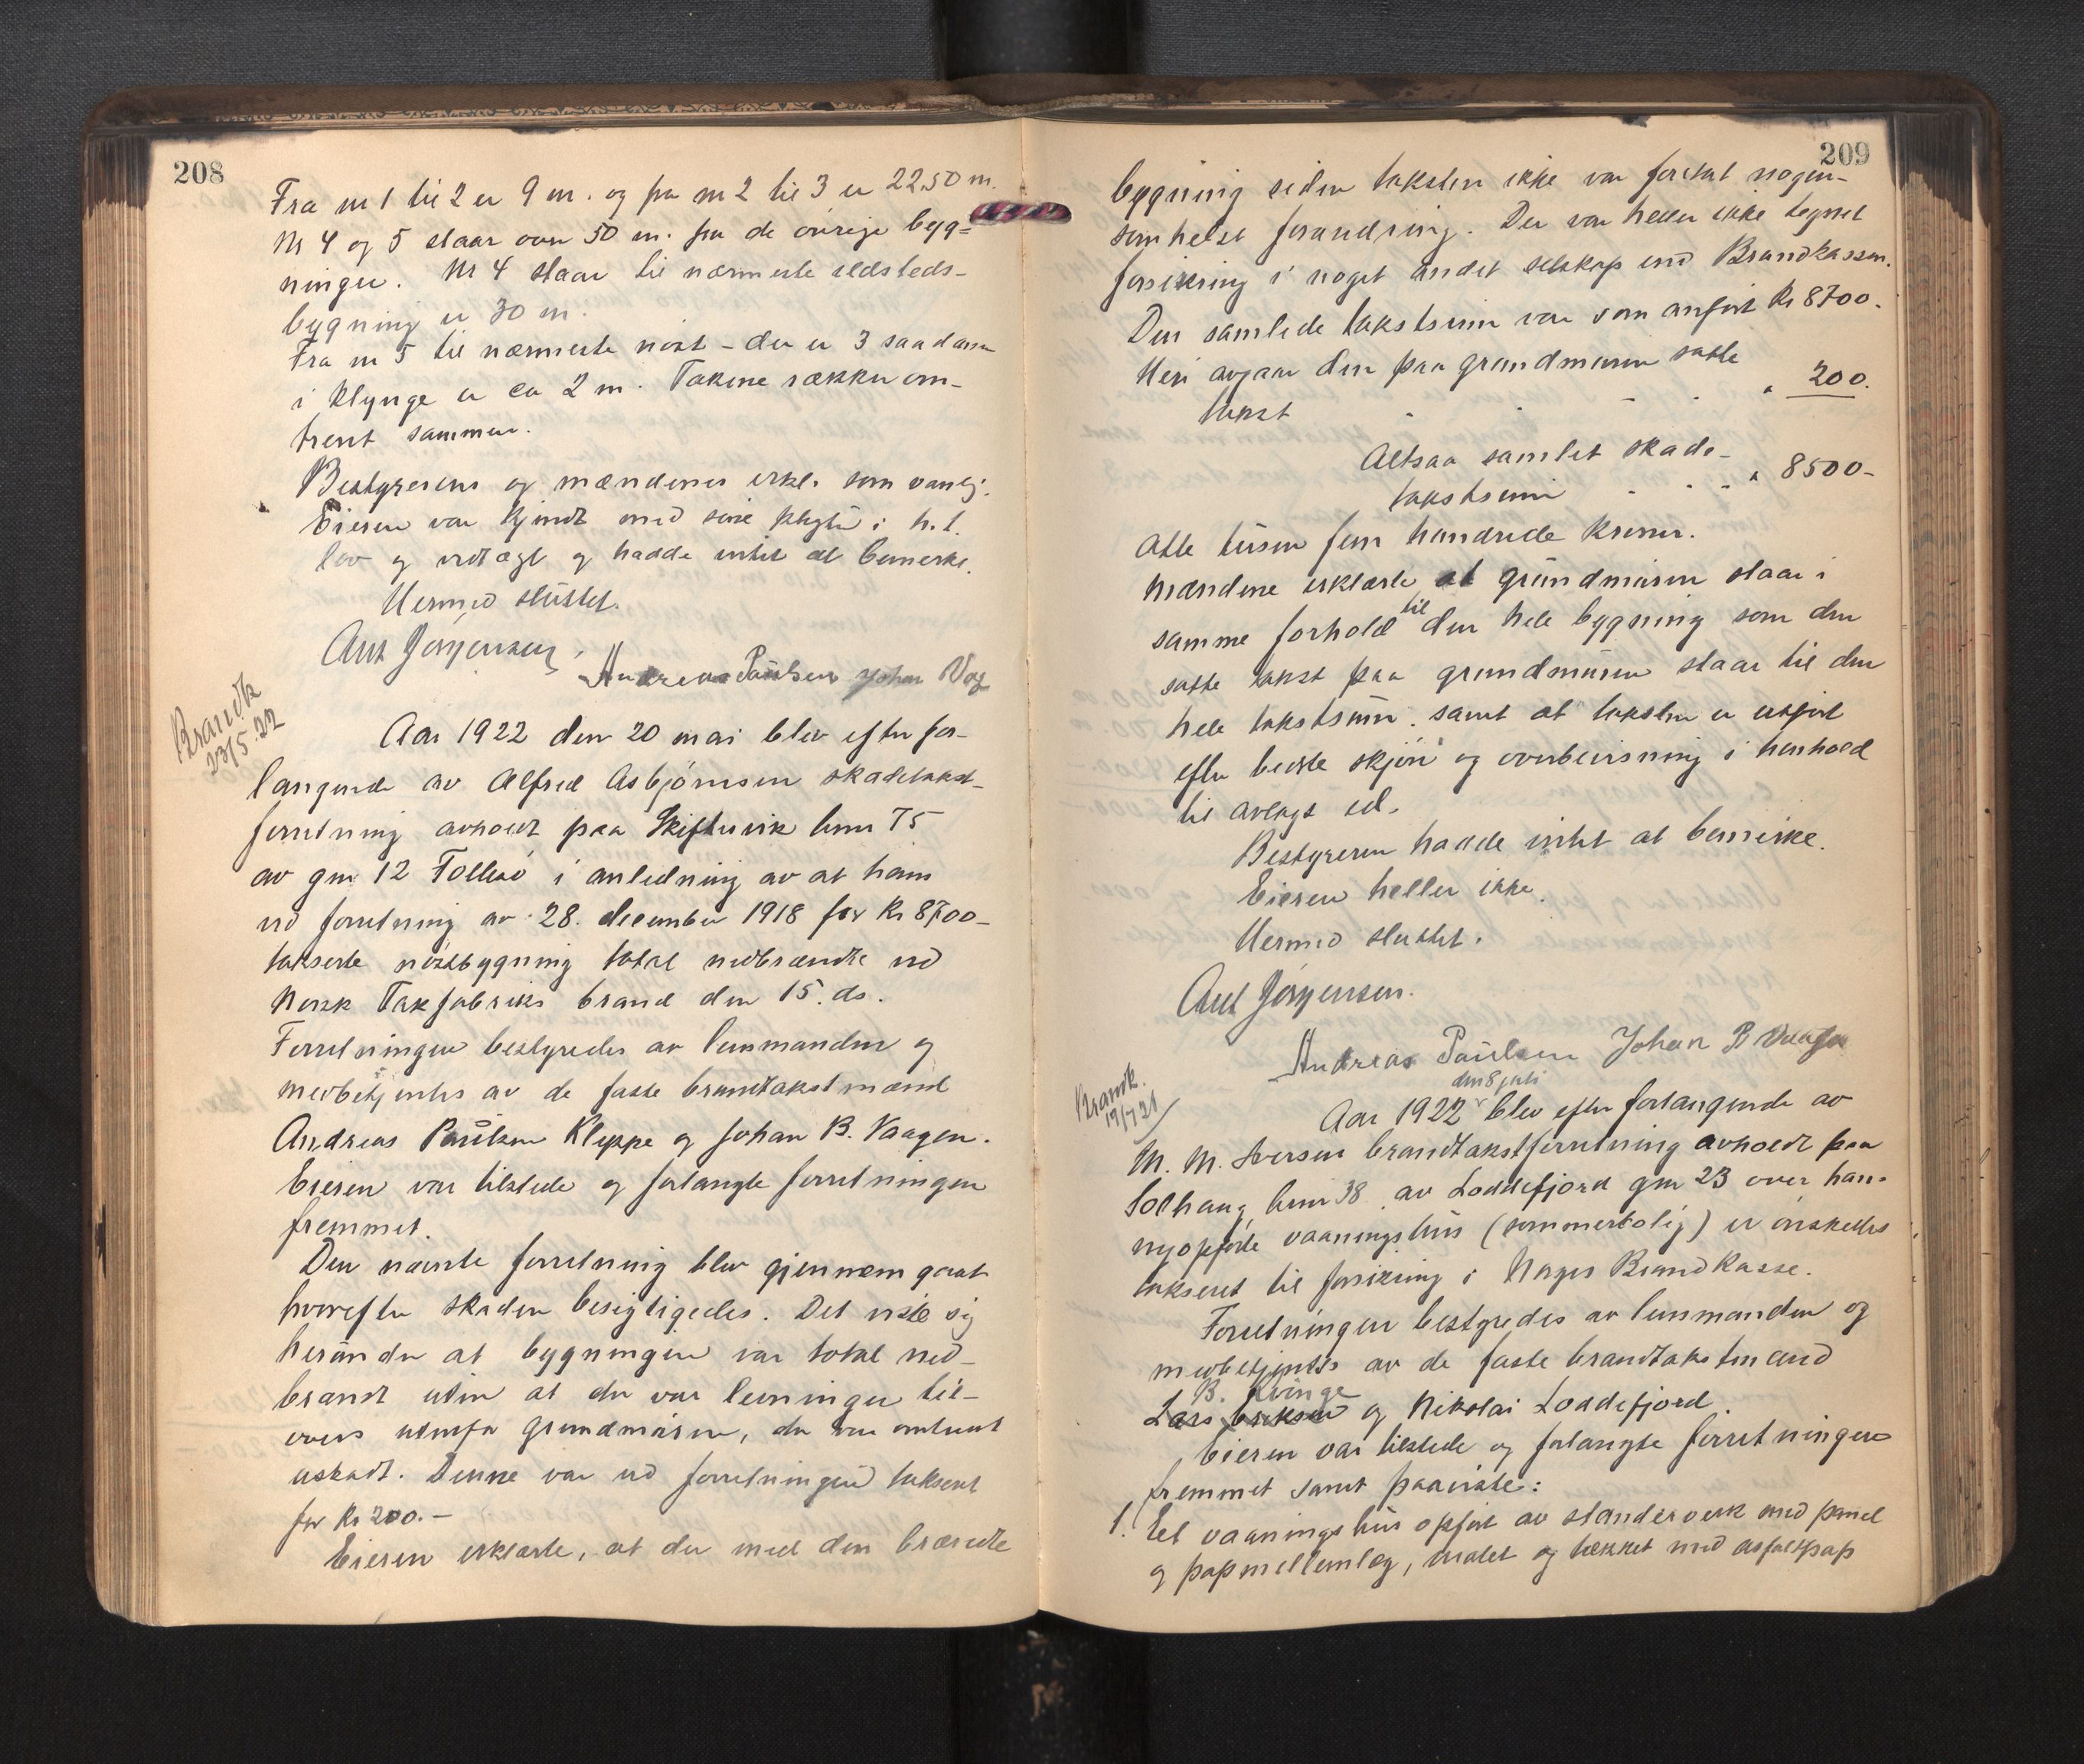 208
Fra nr 1 til 2 er 9 m. og fra nr 2 til 3 er 22,50 m.
Nr 4 og 5 staar over 50 m. fra de øvrige byg=
ninger. Nr 4 staar til nærmeste ildsteds-
bygning er 30 m.
Fra nr 5 til nærmeste nøst - der er 3 saadanne
i klynge er ca 2 m. Takene rækker om-
trent sammen.
Bestyrerens og mændenes erkl. som vanlig.
Eieren var kjendt med sine pligter i h.t.
lov og vedtægt og hadde intet at bemerke.
Hermed sluttet.
Ant Jørgensen,
Andreas Paulsen Johan Vaag
Brandk
23/5.22
Aar 1922 den 20 mai blev efter for-
langende av Alfred Asbjørnsen skadetakst-
forretning avholdt paa Skiftesvik brnr 75
av gnr 12 Follesø i anledning av at hans
ved forretning av 28. december 1918 for Kr 8700-
takserte nøstbygning total nedbrændte ved
Norsk Takfabriks brand den 15. ds.
Forretningen bestyredes av lensmanden og
medbetjentes av de faste brandtakstmænd
Andreas Paulsen Kleppe og Johan B. Vaagen.
Eieren var tilstede og forlangte forretningen
fremmet.
Den nævnte forretning blev gjennemgaat
hvorefter skaden besigtigedes. Det viste sig
herunder at bygningen var total ned-
brændt uten at der var levninger til-
overs utenfor grundmuren, der var omtrent
uskadt. Denne var ved forretningen taksert
for Kr 200.-
Eieren erklærte, at der med den brændte
209
bygning siden taksten ikke var foretat nogen-
somhelst forandring. Der var heller ikke tegnet
forsikring i noget andet selskap end Brandkassen.
Den samlede takstsum var som anført Kr 8700.
Heri avgaar den paa grundmuren satte
takst - - - - " 200.
Altsaa samlet skade-
takstsum - - - " 8500-
Otte tusen fem hundrede kroner.
Mændene erklærte at grundmuren staar i
samme forhold til den hele bygning som den
satte takst paa grundmuren staar til den
hele takstsum, samt at taksten er utført
efter bedste skjøn og overbevisning i henhold
til avlagt ed.
Bestyreren hadde intet at bemerke.
Eieren heller ikke.
Hermed sluttet.
Ant Jørgensen.
Andreas Paulsen Johan B Vaagen
Brandk.
19/7 21
den 8 juli
Aar 1922 blev efter forlangende av
M. M. Iversen brandtakstforretning avholdt paa
Solhaug brnr 38 av Loddefjord gnr 23 over hans
nyopførte vaaningshus (sommerbolig) er ønskedes
taksert til forsikring i Norges Brandkasse.
Forretningen bestyredes av lensmanden og
medbetjentes av de faste brandtakstmænd
B. Kvinge
Lars Eriksen og Nikolai Loddefjord.
Eieren var tilstede og forlangte forretningen
fremmet samt paaviste:
1. Et vaaningshus opført av stenderverk med panel
og papmellemlæg, malet og tækket med asfaltpap